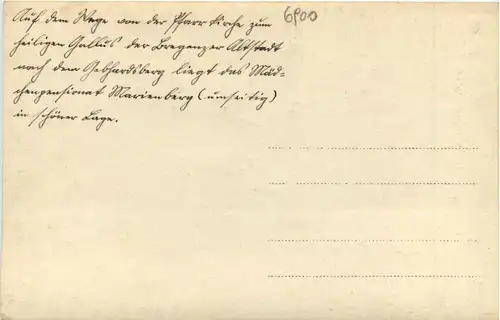 6900
Auf dem Wege von der Pfarrkirche zum
heiligen Gallus der Bregenzer Altstadt
nach dem Gebhardsberg liegt das Mäd-
chenpensionat Marienberg (umseitig)
in schöner Lage.